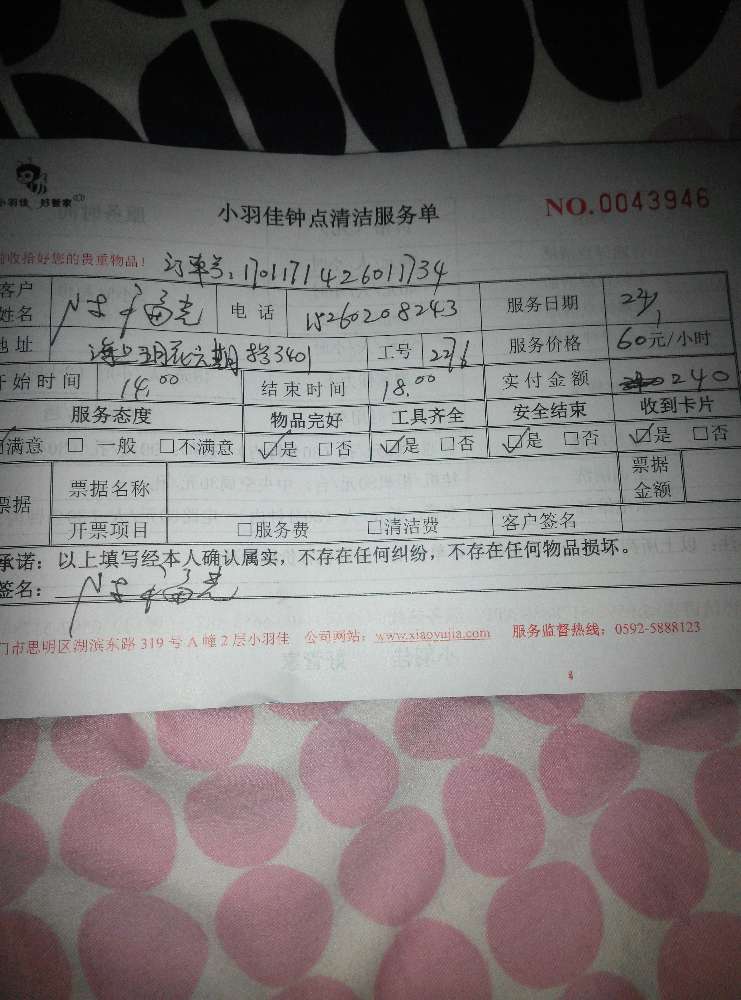 小羽佳 好管家
小羽佳钟点清洁服务单 NO.0043946
收拾好您的贵重物品! 订单号:170117142601734
客户姓名 电话 15260208243 服务日期 22/1
地址 期 3401 工号 2276 服务价格 60元/小时
开始时间 14:00 结束时间 18:00 实付金额 240
服务态度 物品完好 工具齐全 安全结束 收到卡片
满意 □ 一般 □不满意 ☑是 □否 ☑是 □否 ☑是 □否 ☑是 □否
票据 票据名称 票据金额
开票项目 □服务费 □清洁费 客户签名
承诺:以上填写经本人确认属实,不存在任何纠纷,不存在任何物品损坏。
签名:
门市思明区湖滨东路 319 号 A 幢 2 层小羽佳 公司网站:www.xiaoyujia.com 服务监督热线:0592-5888123